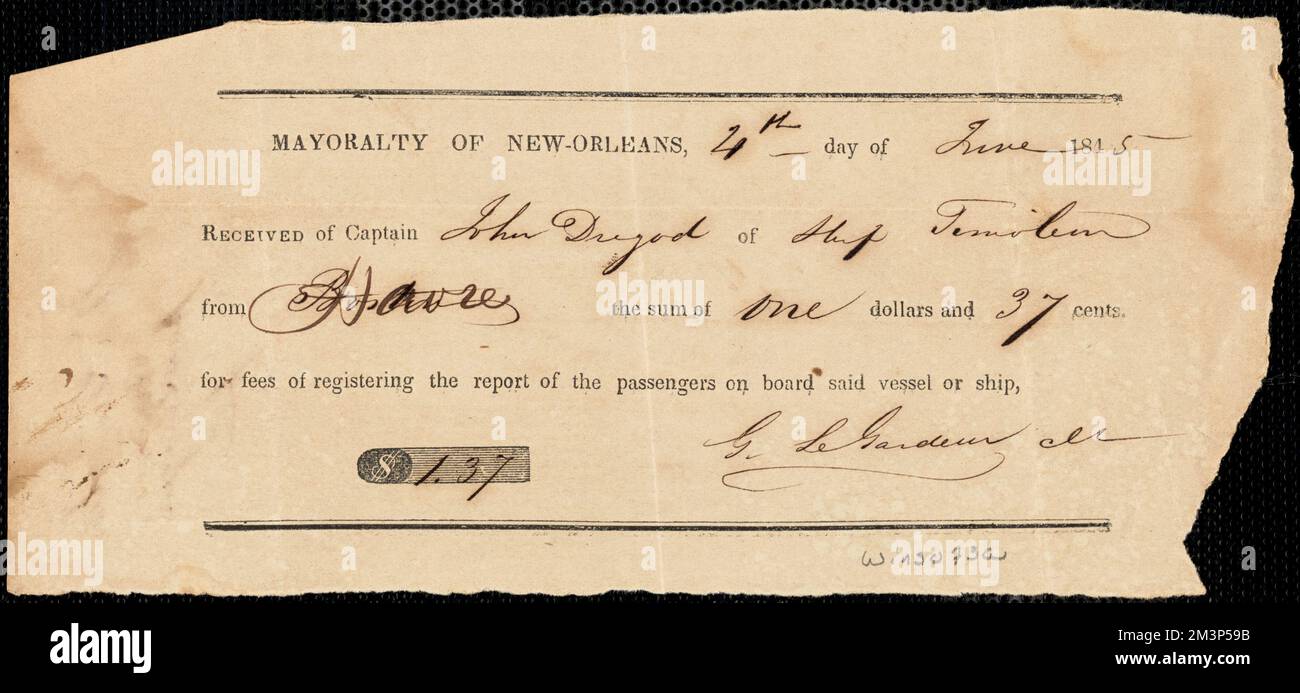 MAYORALTY OF NEW-ORLEANS, 4th day of June 1845
RECEIVED of Captain John Dregod of Ship Timoleon
from Havre the sum of one dollars and 37 cents.
for fees of registering the report of the passengers on board said vessel or ship,
G. Le Gardeur
$ 1.37
alamy
Image ID: 2M3P59B
www.alamy.com